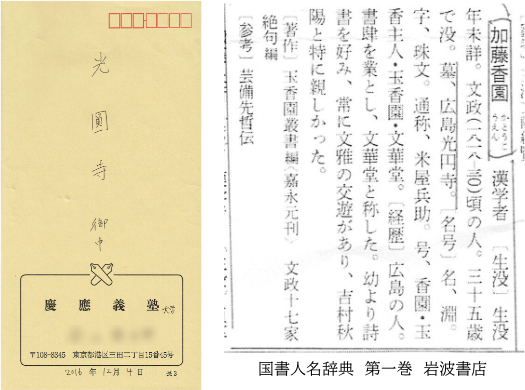 光圓寺 御中
慶應義塾 大学
〒108-8345 東京都港区三田二丁目15番45号
2016年12月4日
加藤香園 かとうこうえん 漢学者 〔生没〕生没
年未詳。文政(一八一八-三〇)頃の人。三十五歳
で没。墓、広島光円寺。〔名号〕名、淵。
字、珠文。通称、米屋兵助。号、香園・玉
香主人・玉香園・文華堂。〔経歴〕広島の人。
書肆を業とし、文華堂と称した。幼より詩
書を好み、常に文雅の交遊があり、吉村秋
陽と特に親しかった。
〔著作〕玉香園叢書編〈嘉永元刊〉 文政十七家
絶句編
〔参考〕芸備先哲伝
国書人名辞典 第一巻 岩波書店